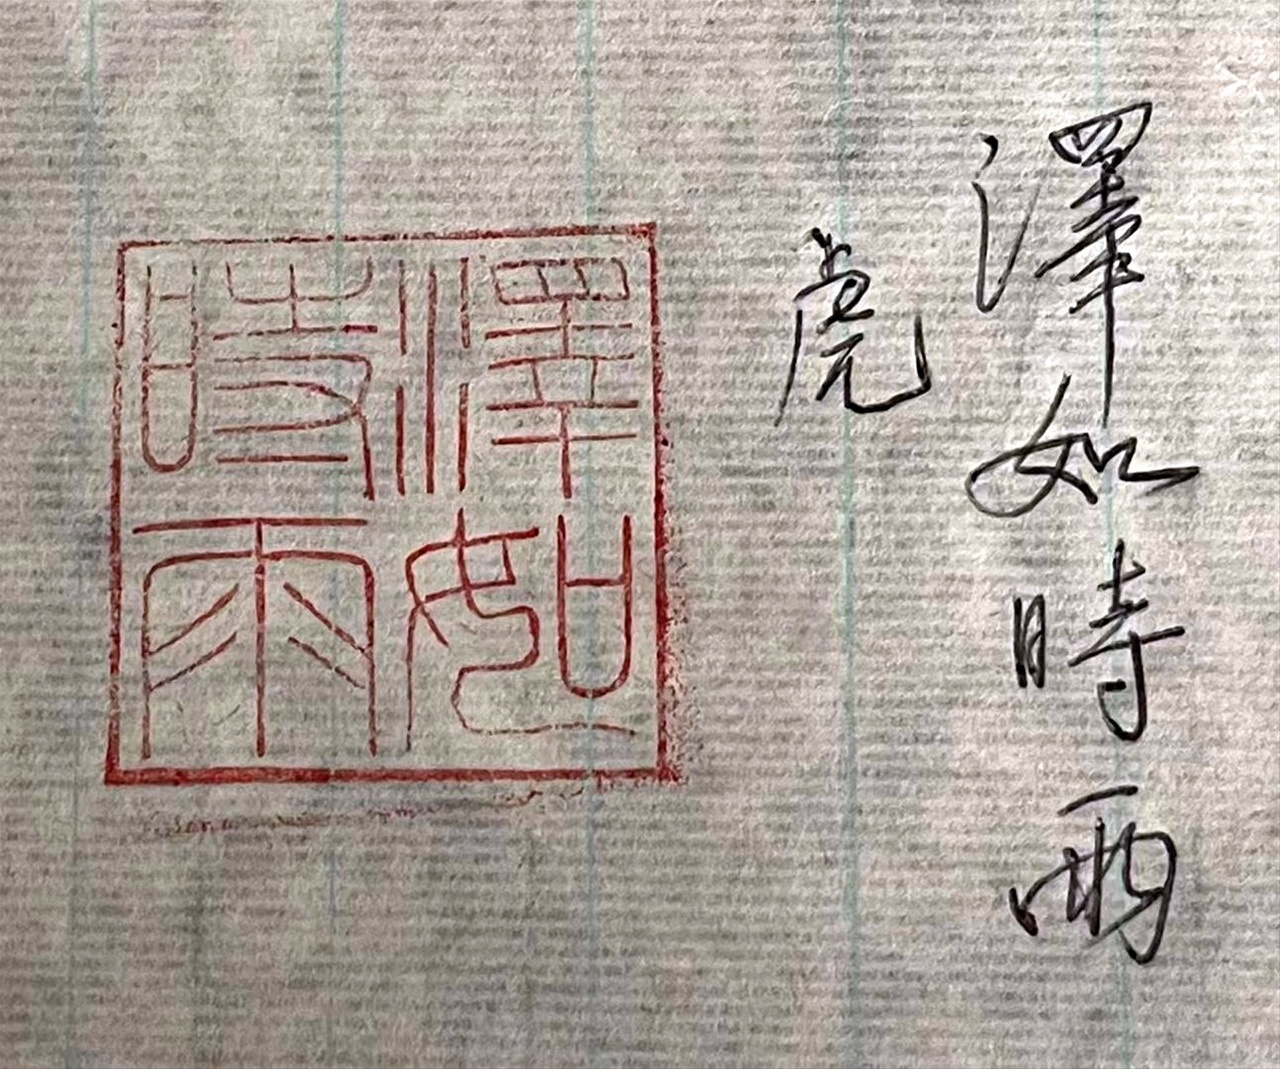 澤如時雨
虎
澤如
時雨